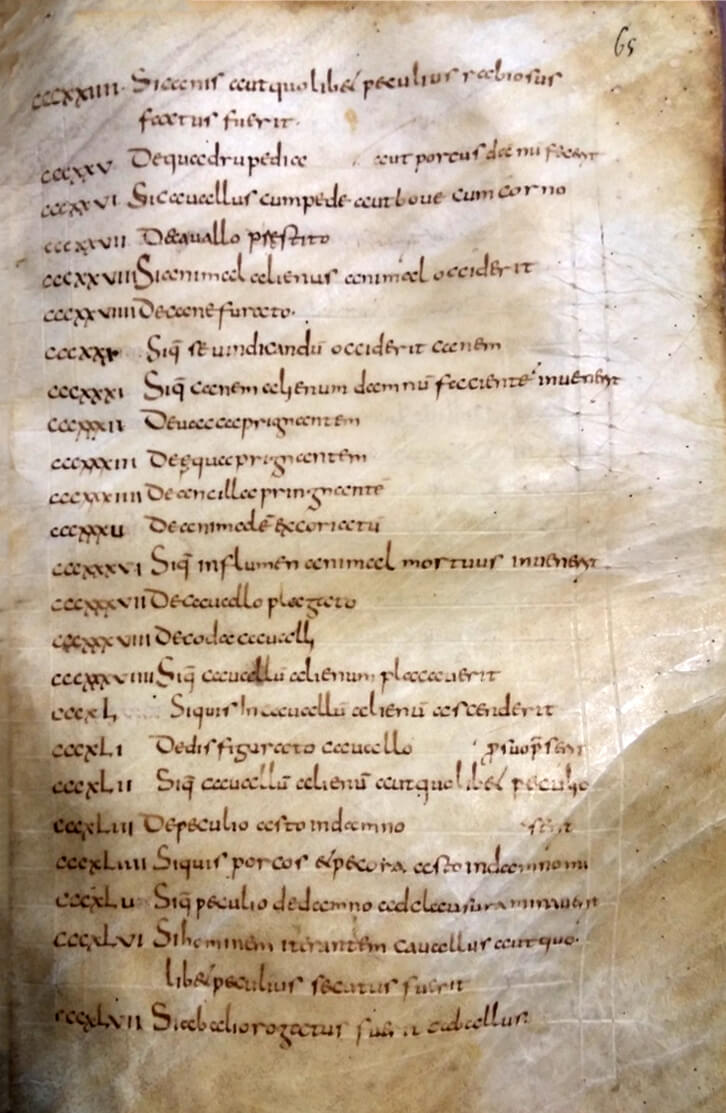 65
cccxxiiii· Si canis aut quolibet peculius rabiosus
factus fuerit·
cccxxv De quadrupedia aut porcus damnu fecerit
cccxxvi Si cauallus cum pede aut boue cum corno
cccxxvii De cauallo prestito
cccxxviii Si animal alienus animal occiderit
cccxxviiii De cane furato·
cccxxx Siq̄ se uindicandū occiderit canem
cccxxxi Siq̄ canem alienum damnū faciente inuenerit
cccxxxii De uacca prignantem
cccxxxiii De equa prignantem
cccxxxiiii De ancilla pringnantē
cccxxxu De animale excoriatū
cccxxxvi Siq̄ in flumen animal mortuus inuenerit
cccxxxvii De cauallo plagato
cccxxxviii De coda cauall
cccxxxviiii Siq̄ cauallū alienum placauerit
cccxl Siquis In cauallū alienū ascenderit
cccxli De disfigurato cauallo
cccxlii Siq̄ cauallū alienū aut quolibet peculio
cccxliii De peculio asto in damno
cccxliiii Siquis porcos et pecora asto in damno mi
cccxlu Siq̄ peculio de damno ad clausura minauerit
cccxlvi Si hominem iterantem cauallus aut quo
libet peculius secatus fuerit
cccxlvii Si ab alio rogatus fuerit caballus